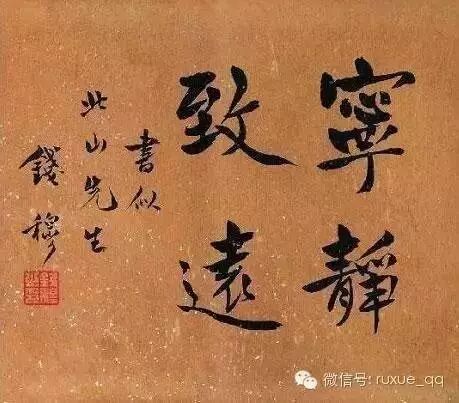 寧靜
致遠
書似
此山先生
錢穆
微信号: ruxue_qq